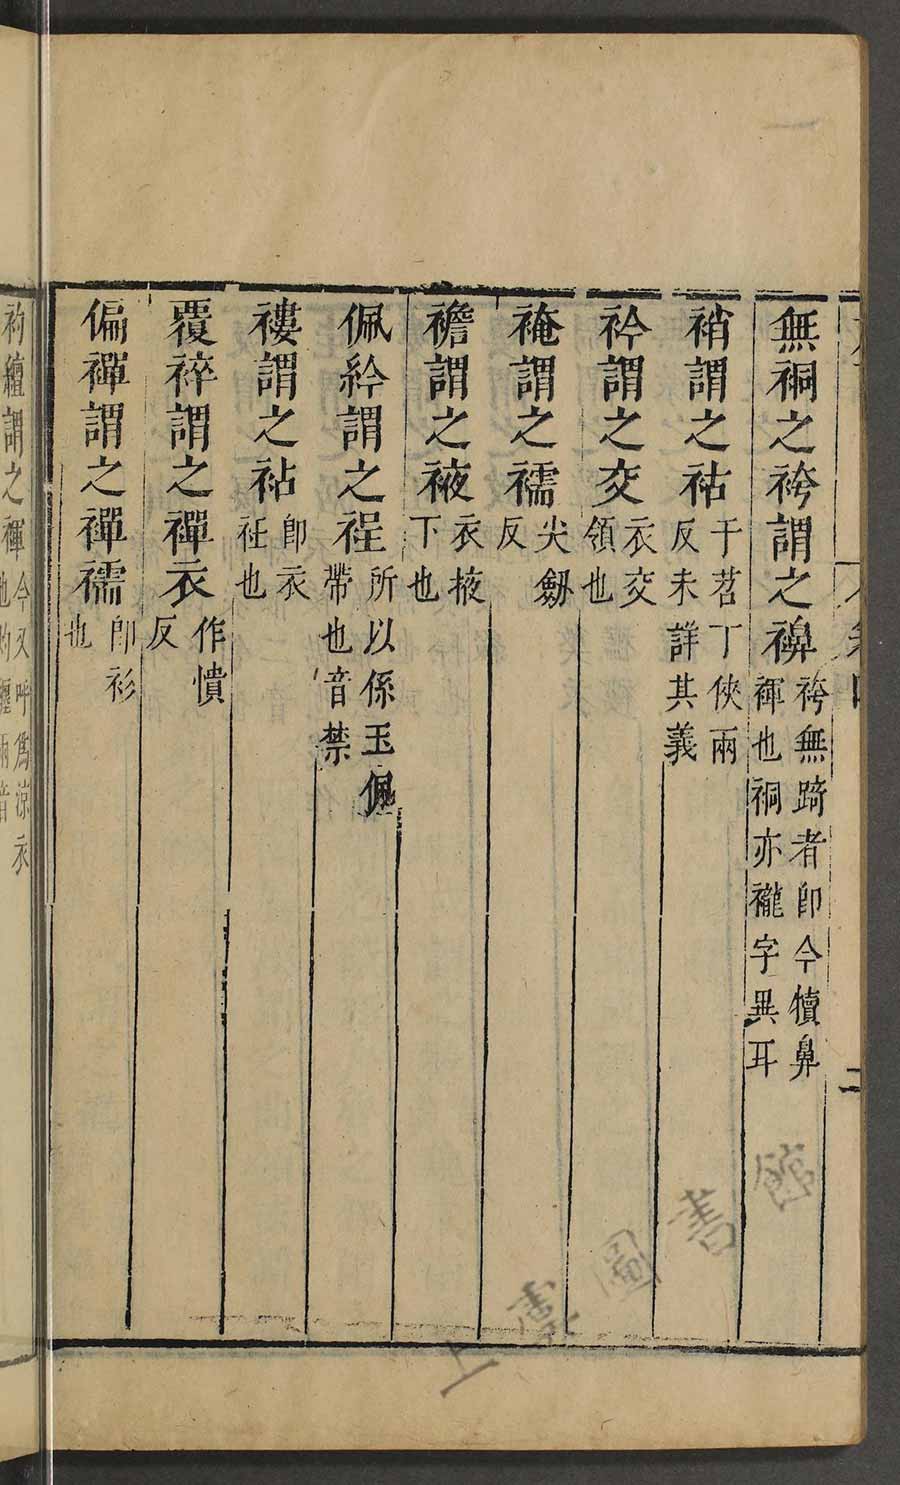 無祠之袴謂之襣袴無踦者卽今犢鼻褌也祠亦襱字異耳
䘯謂之袩于苕丁俠兩反未詳其義
衿謂之交衣交領也
裺謂之襦尖劔反
襜謂之被衣掖下也
佩紟謂之裎所以係玉佩帶也音禁
褸謂之袩卽衣衽也
覆䘹謂之襌衣作憒反
偏襌謂之襌襦卽衫也
袀䙼謂之褌今又呼爲涼衣也灼纏兩音
二
上虞圖書館